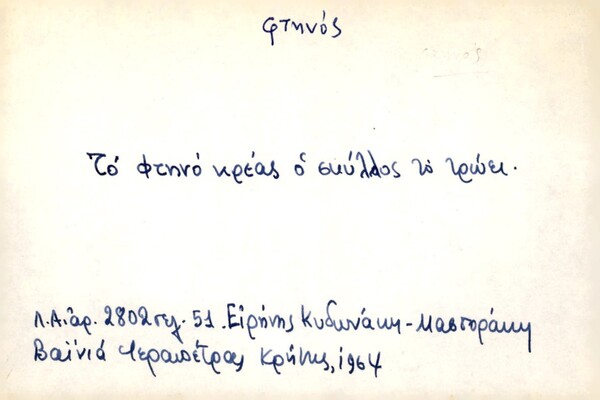 φτηνός
Τό φτηνό κρέας ὁ σκύλλος τό τρώει.
Λ.Α. ἀρ. 2802 σελ. 51. Εἰρήνης Κυδωνάκη-Μαστοράκη
Βαϊνιά Ἱεραπέτρας Κρήτης, 1964